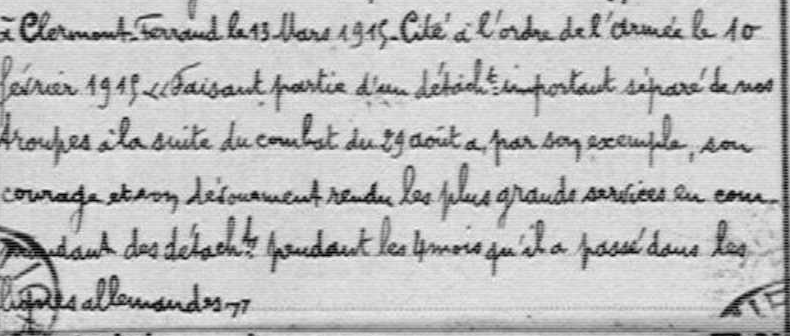 à Clermont-Ferrand le 13 Mars 1915. Cité à l'ordre de l'Armée le 10
février 1915 « Faisant partie d'un détacht important séparé de nos
troupes à la suite du combat du 29 août a, par son exemple, son
courage et son dévouement rendu les plus grands services en com-
mandant des détachts pendant les 4 mois qu'il a passé dans les
lignes allemandes »